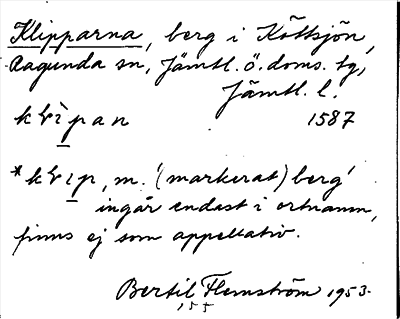 Klipparna, berg i Köttsjön,
Ragunda sn, Jämtl. ö. doms. tg,
Jämtl. l.
kλìpan 1587
*kλìp, m. '(markerat) berg'
ingår endast i ortnamn,
finns ej som appellativ.
Bertil Flemström 1953.